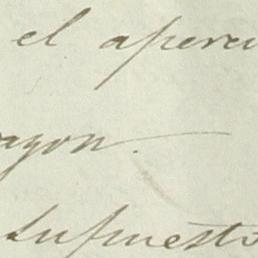 el aperci
azon.
supuesto